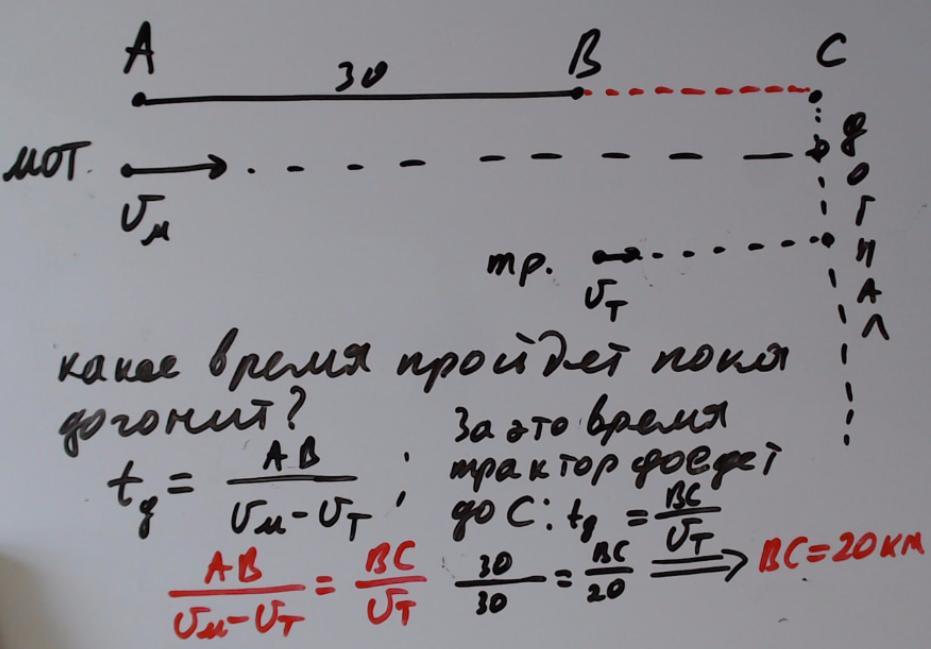 A B C
30
мот.
υм
тр.
υт
догнал
какое время пройдет пока
догонит?
tд = AB / (υм - υт) ;
За это время
трактор доедет
до C: tд = BC / υт
AB / (υм - υт) = BC / υт
30 / 30 = BC / 20 ⟹ BC = 20 км